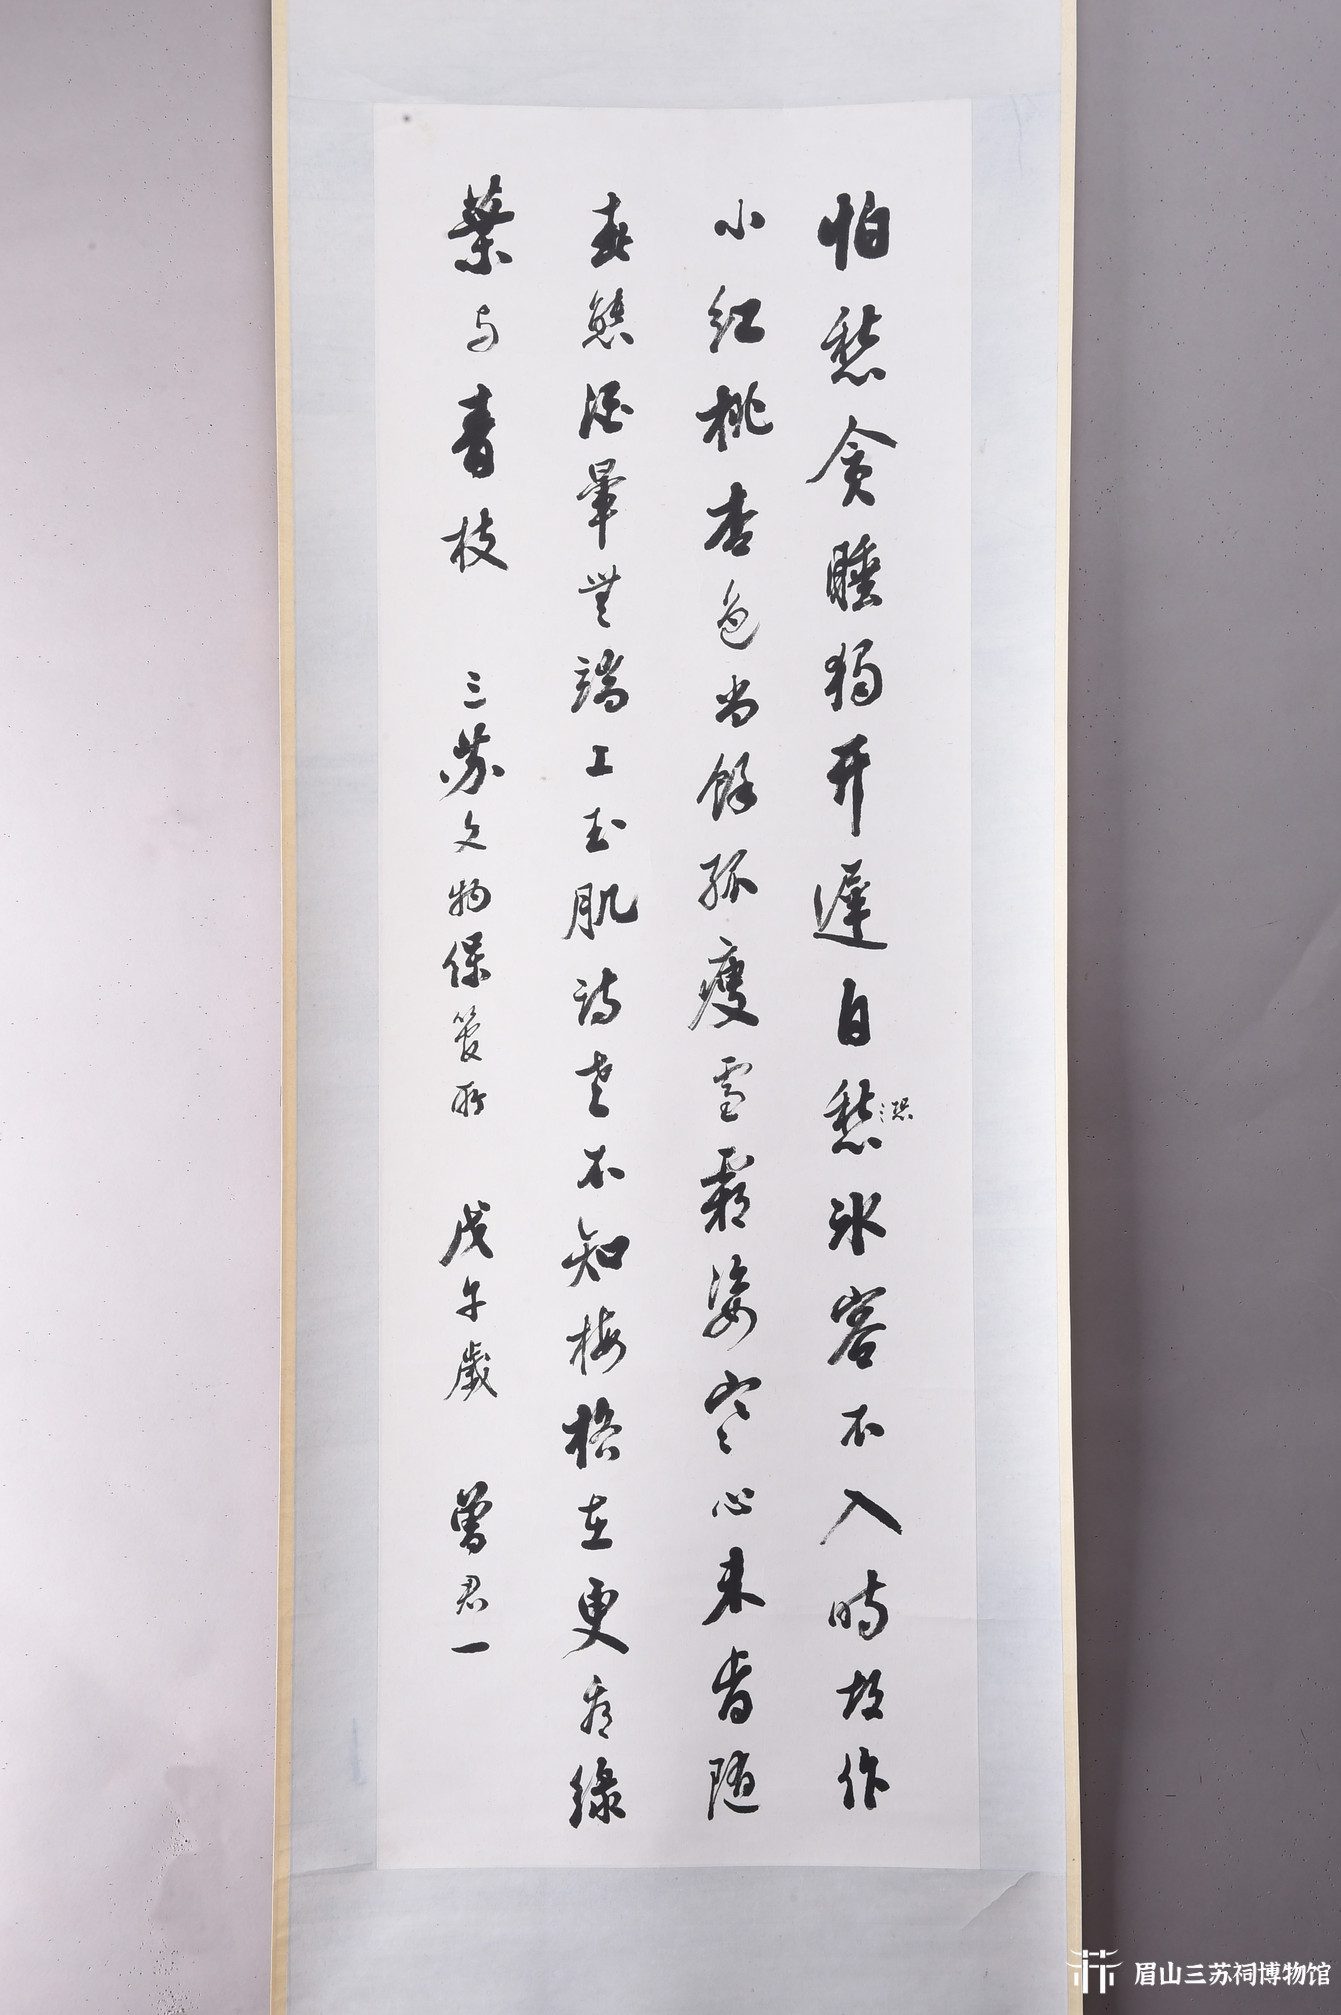 怕愁貪睡獨开遲自愁冰容不入時故作
恐
小紅桃杏色尚餘孤瘦雪霜姿寒心未肯随
春態酒暈無端上玉肌詩老不知梅格在更看綠
葉与青枝 三蘇文物保管所 戊午歲 曾君一
眉山三苏祠博物馆